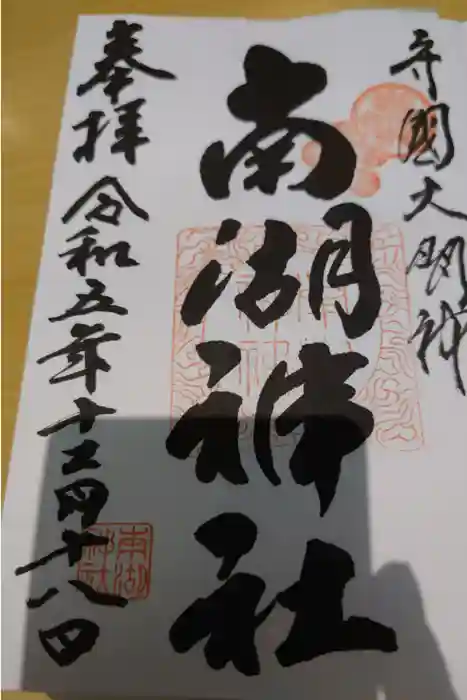 守國大明神
南湖神社
奉拝 令和五年十二月十八日
南湖
神社